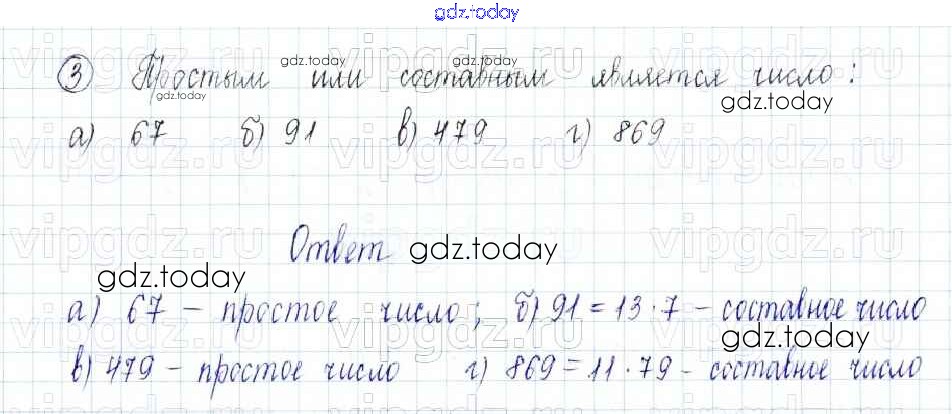 gdz.today
vipgdz.ru vipgdz.ru vipgdz.ru
gdz.today gdz.today gdz.today
③ Простым или составным является число:
gdz.today gdz.today
а) 67 б) 91 в) 479 г) 869
vipgdz.ru vipgdz.ru vipgdz.ru
vipgdz.ru vipgdz.ru vipgdz.ru
Ответ gdz.today
gdz.today
а) 67 – простое число; б) 91 = 13 · 7 – составное число
vipgdz.ru vipgdz.ru vipgdz.ru
gdz.today
в) 479 – простое число г) 869 = 11 · 79 – составное число